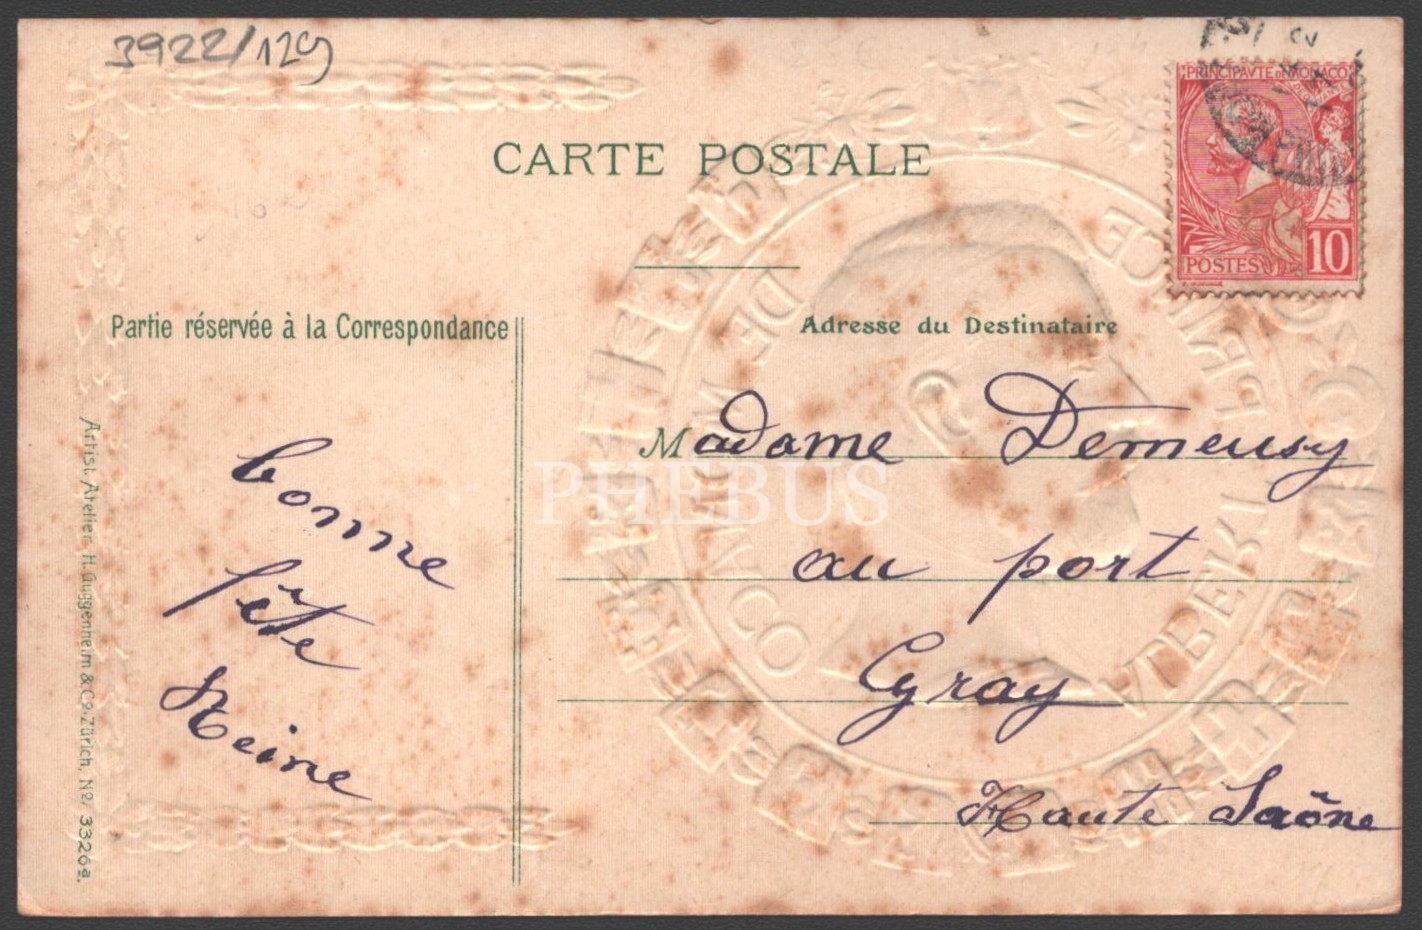 3922/129
CARTE POSTALE
PRINCIPAUTE DE MONACO
POSTES 10
Partie réservée à la Correspondance
Adresse du Destinataire
bonne
fête
Reine
Madame Demeusy
au port
Gray
Haute Saône
Artist. Atelier H. Guggenheim & Co. Zürich, No. 3326a.
PHEBUS